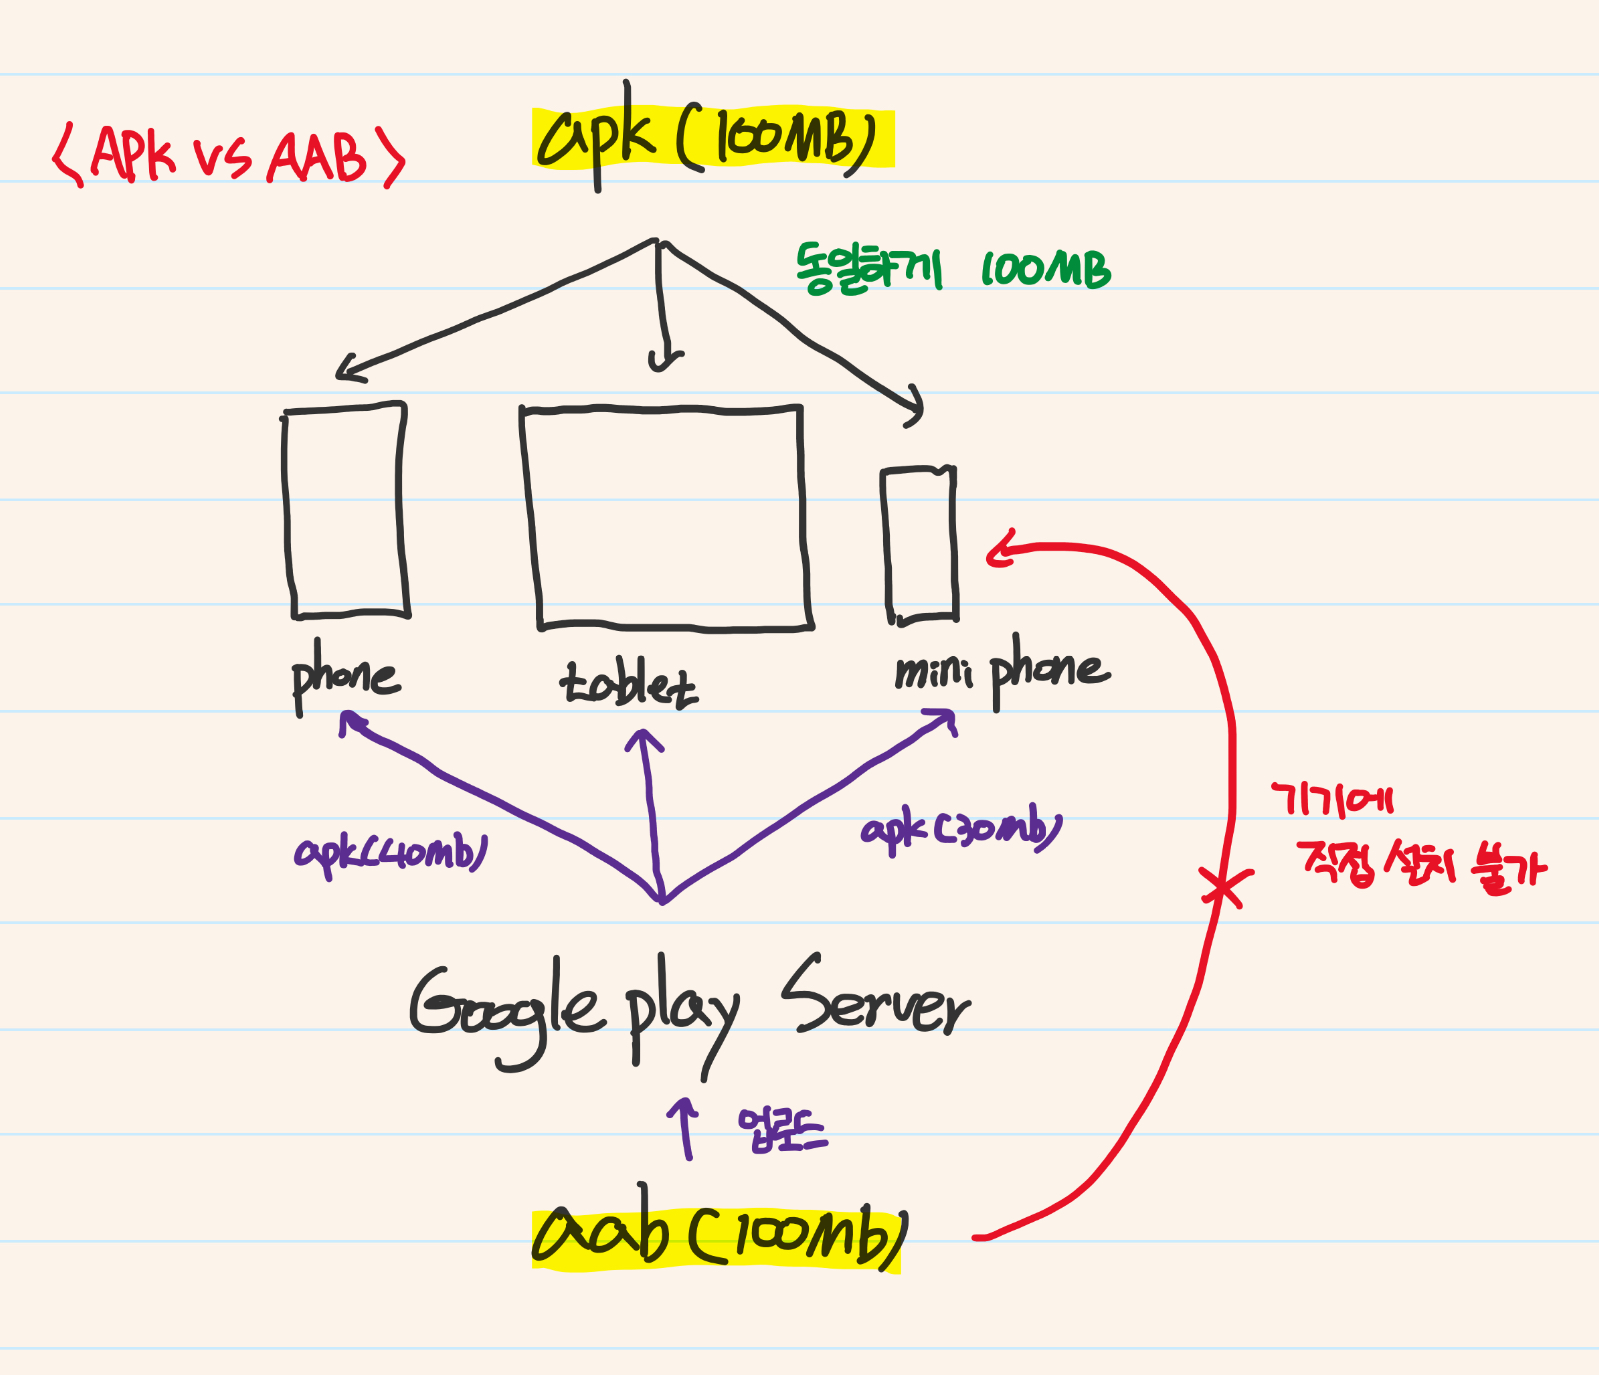 <APK vs AAB>
apk (100MB)
동일하게 100MB
phone
tablet
mini phone
apk(40mb)
apk(30mb)
기기에
직접 설치 불가
Google play Server
업로드
aab (100mb)